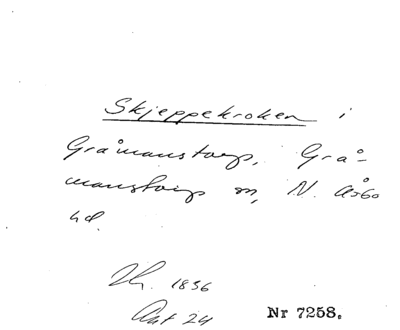 Skjeppekroken i
Gråmanstorp, Grå-
manstorps sn, N. Åsbo
hd.
Th. 1836
Akt 24
Nr 7258.